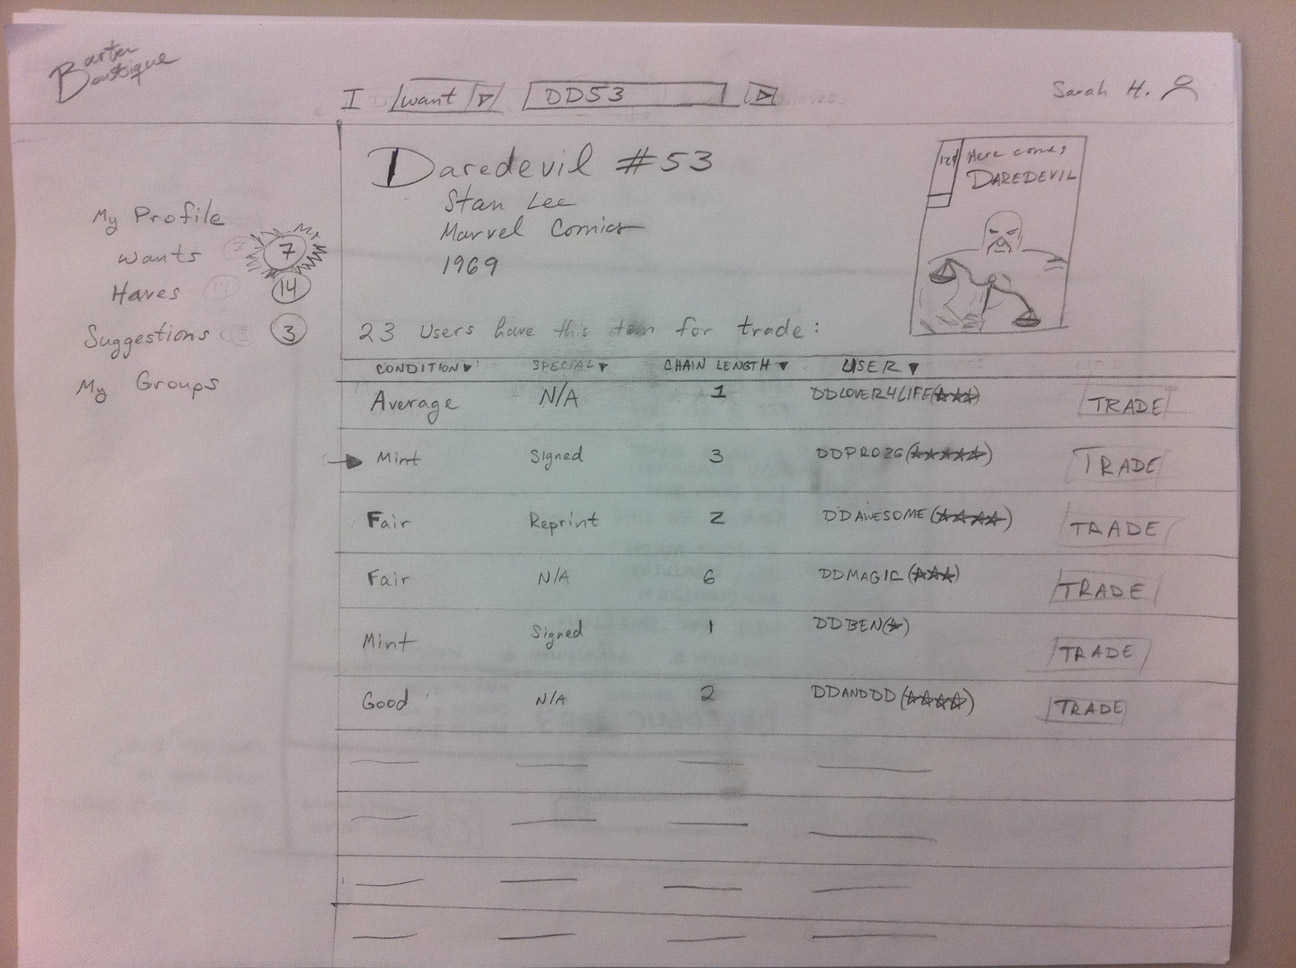 Barter
Boutique
I want DD53
Sarah H.
My Profile
Wants 7
Haves 14
Suggestions 3
My Groups
Daredevil #53
Stan Lee
Marvel Comics
1969
Here comes
DAREDEVIL
23 Users have this item for trade:
CONDITION SPECIAL CHAIN LENGTH USER
Average N/A 1 DDLOVER4LIFE TRADE
Mint Signed 3 TRADE
Fair Reprint 2 DDAWESOME TRADE
Fair N/A 6 DDMAGIC TRADE
Mint Signed 1 DDBEN TRADE
Good N/A 2 DDANDDD TRADE